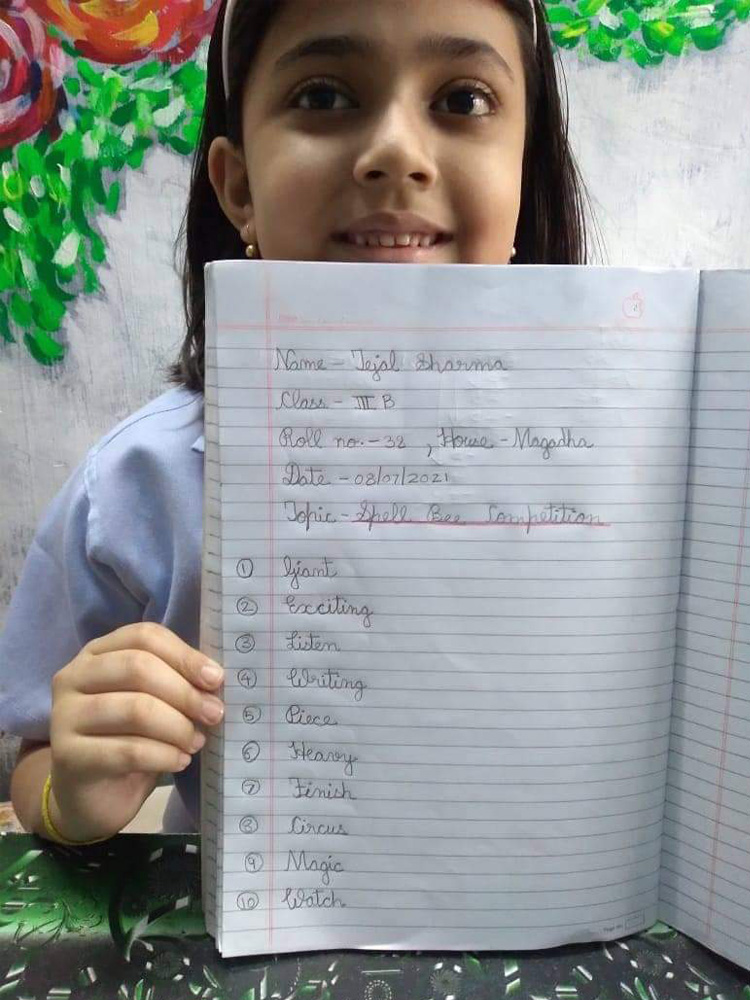 Name - Tejal Sharma
Class - III B
Roll no. - 32 , House - Magadha
Date - 08/07/2021
Topic - Spell Bee Competition
① Giant
② Exciting
③ Listen
④ Writing
⑤ Piece
⑥ Heavy
⑦ Finish
⑧ Circus
⑨ Magic
⑩ Watch